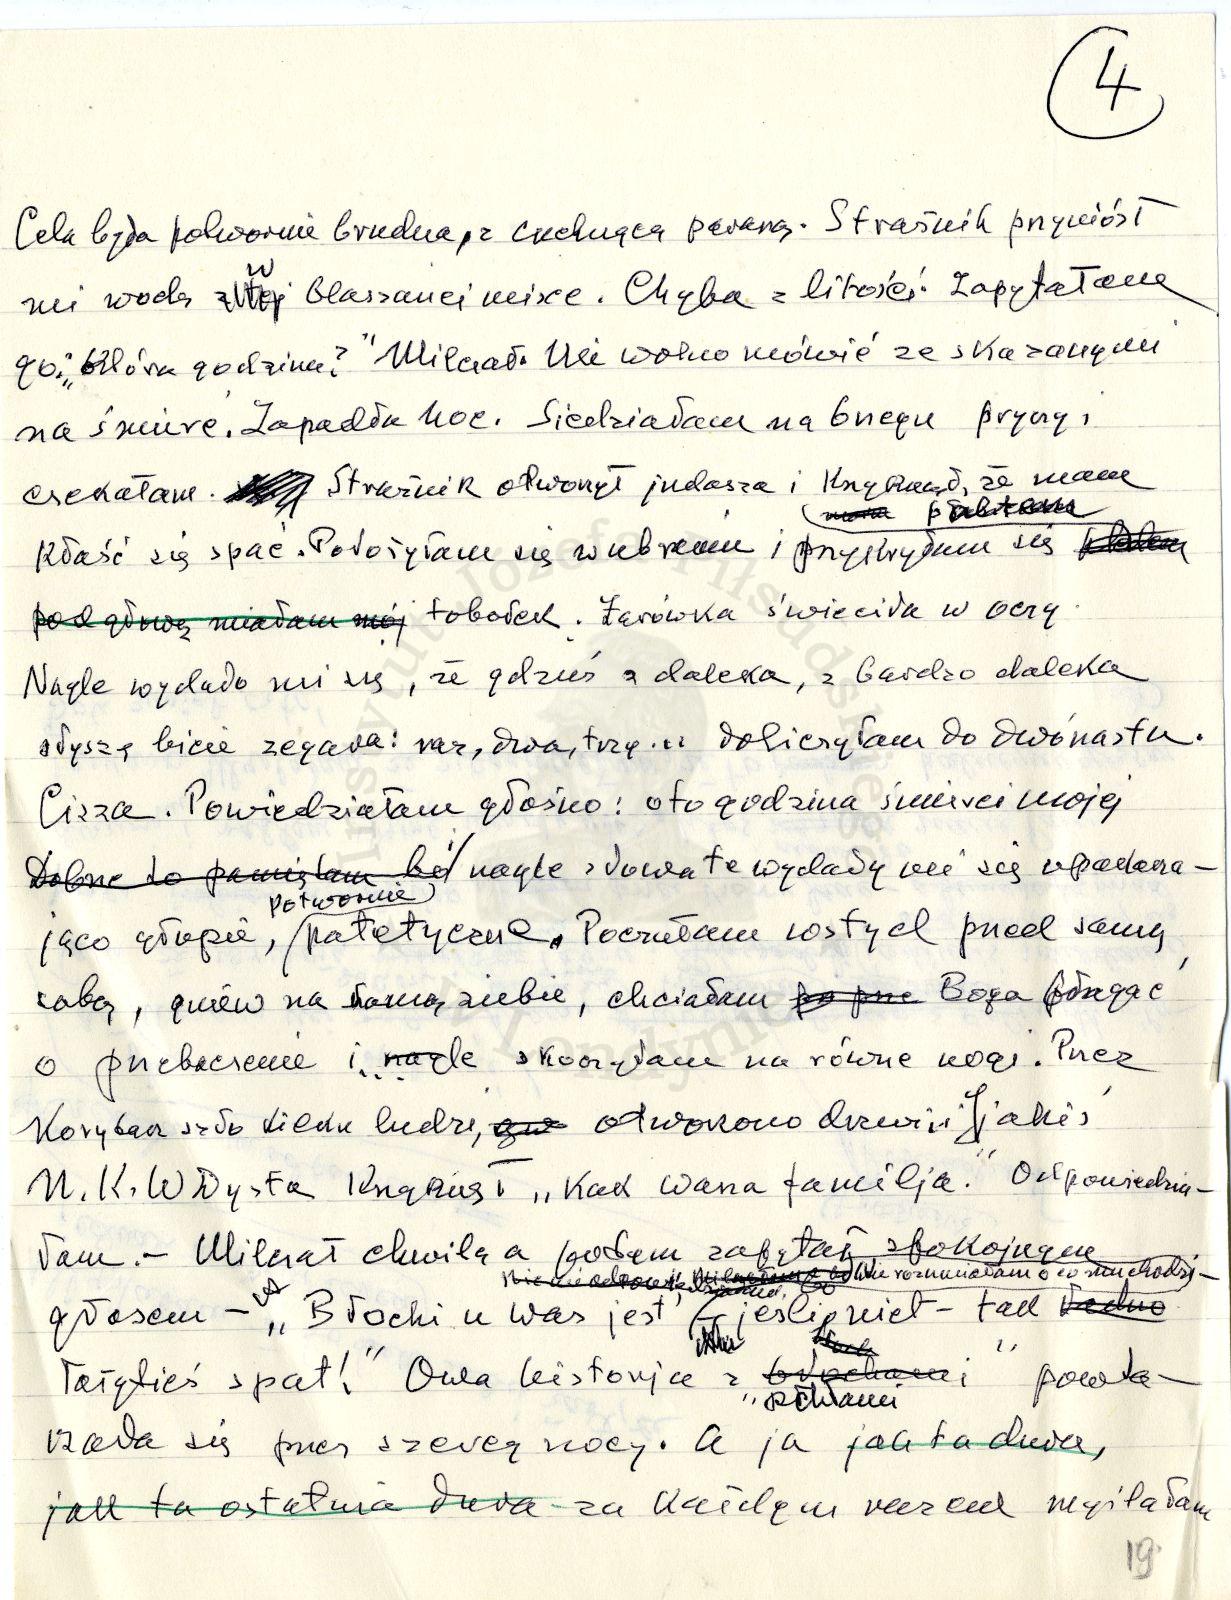 4
Cela była potwornie brudna, z cuchnącą paraszą. Strażnik przyniósł
mi wodę w blaszanej misce. Chyba z litości. Zapytałam
go: "Która godzina?" Milczał. Nie wolno mówić ze skazanymi
na śmierć. Zapadła noc. Siedziałam na brzegu pryczy i
czekałam. Strażnik otworzył judasza i krzyknął, że mam
kłaść się spać. Położyłam się w ubraniu i przykryłam się
pod głową miałam mój tobołek. Żarówka świeciła w oczy.
Nagle wydało mi się, że gdzieś z daleka, z bardzo daleka
słyszę bicie zegara: raz, dwa, trzy ... doliczyłam do dwónastu.
Cisza. Powiedziałam głośno: oto godzina śmierci mojej
Dobrze to pamiętam bo i nagle słowa te wydały mi się upokarza-
potwornie
jąco głupie, patetyczne. Poczułam wstyd przed samą
sobą, gniew na samą siebie, chciałam Boga błagać
o przebaczenie i nagle skoczyłam na równe nogi. Przez
korytarz szło kilku ludzi, otworzono drzwi i jakiś
N.K.Wdysta krzyknął "Kak wasza familja." Odpowiedzia-
łam. - Milczał chwilę a potem zapytał spokojnym
nie rozumiałam o co mu chodzi -
głosem - "Błochi u was jest' jesli niet - tak
łożyties spat!" Owa historja z
"pchłami"
powta-
rzała się przez szereg nocy. A ja jak ta dura,
jak ta ostatnia dura za każdym razem myślałam
19